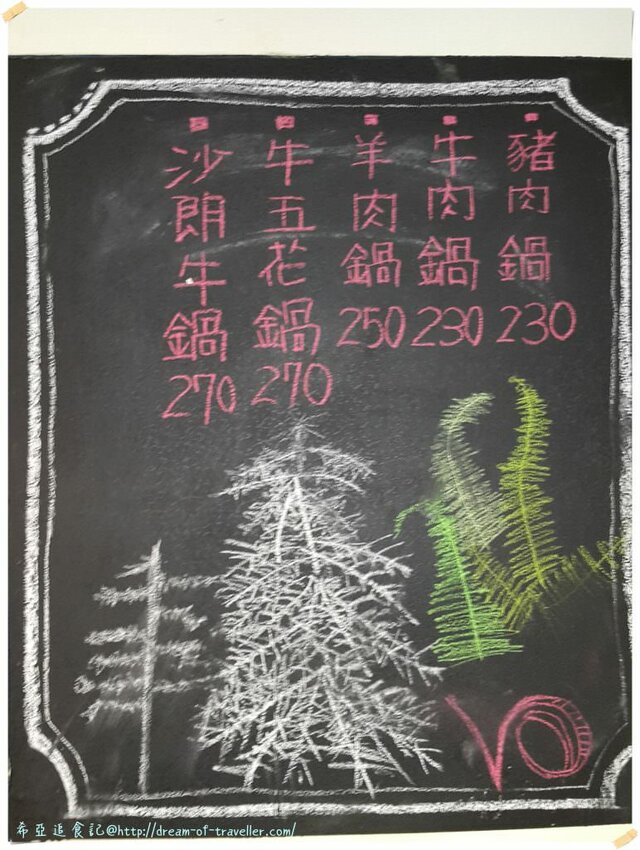 豬肉鍋230
牛肉鍋230
羊肉鍋250
牛五花鍋270
沙朗牛鍋270
希亞追食記@http://dream-of-traveller.com/